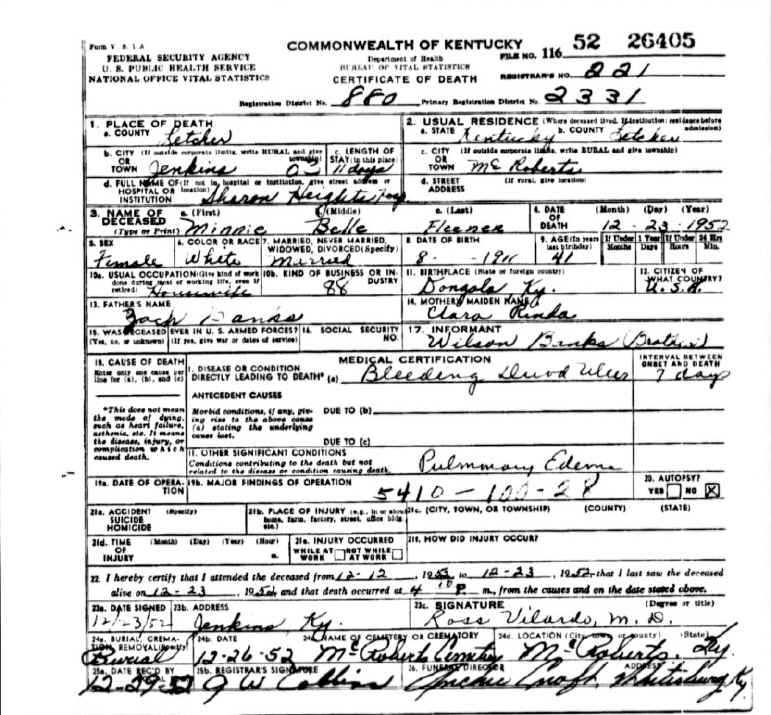 Form V. S. 1-A
COMMONWEALTH OF KENTUCKY
FILE NO. 116 52 26405
FEDERAL SECURITY AGENCY
U. S. PUBLIC HEALTH SERVICE
NATIONAL OFFICE VITAL STATISTICS
Department of Health
BUREAU OF VITAL STATISTICS
CERTIFICATE OF DEATH
REGISTRAR'S NO. 221
Registration District No. 880 Primary Registration District No. 2331
1. PLACE OF DEATH
a. COUNTY Letcher
2. USUAL RESIDENCE (Where deceased lived. If institution: residence before admission)
a. STATE Kentucky b. COUNTY Letcher
b. CITY (If outside corporate limits, write RURAL and give township)
OR TOWN Jenkins
c. LENGTH OF STAY (in this place)
11 days
c. CITY (If outside corporate limits, write RURAL and give township)
OR TOWN McRoberts
d. FULL NAME OF (If not in hospital or institution, give street address or location)
HOSPITAL OR INSTITUTION Sharon Heights Hosp
d. STREET ADDRESS (If rural, give location)
3. NAME OF DECEASED (Type or Print)
a. (First) Minnie
b. (Middle) Belle
c. (Last)
4. DATE OF DEATH (Month) (Day) (Year)
12 - 23 - 1952
5. SEX
Female
6. COLOR OR RACE
White
7. MARRIED, NEVER MARRIED, WIDOWED, DIVORCED (Specify)
Married
8. DATE OF BIRTH
8- -1911
9. AGE (In years last birthday)
41
If Under 1 Year Months Days
If Under 24 Hrs Hours Min.
10a. USUAL OCCUPATION (Give kind of work done during most of working life, even if retired)
Housewife
10b. KIND OF BUSINESS OR INDUSTRY
88
11. BIRTHPLACE (State or foreign country)
Dongola Ky.
12. CITIZEN OF WHAT COUNTRY?
U.S.A.
13. FATHER'S NAME
Zach Banks
14. MOTHER'S MAIDEN NAME
Clara
15. WAS DECEASED EVER IN U. S. ARMED FORCES?
(Yes, no, or unknown) (If yes, give war or dates of service)
16. SOCIAL SECURITY NO.
17. INFORMANT
Wilson Banks (Brother)
18. CAUSE OF DEATH
Enter only one cause per line for (a), (b), and (c)
MEDICAL CERTIFICATION
INTERVAL BETWEEN ONSET AND DEATH
I. DISEASE OR CONDITION
DIRECTLY LEADING TO DEATH* (a) Bleeding Duod Ulcer
7 days
*This does not mean the mode of dying, such as heart failure, asthenia, etc. It means the disease, injury, or complication which caused death.
ANTECEDENT CAUSES
Morbid conditions, if any, giving rise to the above cause (a) stating the underlying cause last.
DUE TO (b)
DUE TO (c)
II. OTHER SIGNIFICANT CONDITIONS
Conditions contributing to the death but not related to the disease or condition causing death.
Pulmonary Edema
19a. DATE OF OPERATION
19b. MAJOR FINDINGS OF OPERATION
5410-100-28
20. AUTOPSY?
YES NO X
21a. ACCIDENT SUICIDE HOMICIDE (Specify)
21b. PLACE OF INJURY (e.g., in or about home, farm, factory, street, office bldg. etc.)
21c. (CITY, TOWN, OR TOWNSHIP) (COUNTY) (STATE)
21d. TIME OF INJURY (Month) (Day) (Year) (Hour)
m.
21e. INJURY OCCURRED
WHILE AT WORK NOT WHILE AT WORK
21f. HOW DID INJURY OCCUR?
22. I hereby certify that I attended the deceased from 12-12, 1952 to 12-23, 1952, that I last saw the deceased
alive on 12-23, 1952 and that death occurred at 4 10 P m., from the causes and on the date stated above.
23a. DATE SIGNED
12/23/52
23b. ADDRESS
Jenkins Ky.
23c. SIGNATURE (Degree or title)
Ross Vilardo, M. D.
24a. BURIAL, CREMATION, REMOVAL
Burial
24b. DATE
12-26-52
24c. NAME OF CEMETERY OR CREMATORY
McRoberts Cemetery
24d. LOCATION (City, town, or county) (State)
McRoberts, Ky.
25a. DATE REC'D BY LOCAL
12-29-52
25b. REGISTRAR'S SIGNATURE
J W Collins
26. FUNERAL DIRECTOR ADDRESS
Archie Craft, Whitesburg Ky